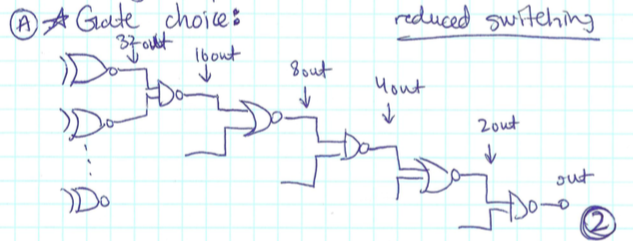 Ⓐ ☆ Gate choice: reduced switching
32 out
16 out
8 out
4 out
2 out
out
②